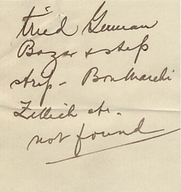 tried German
Bazar & step
strip - Bon Marchi
Zillich etc.
not found